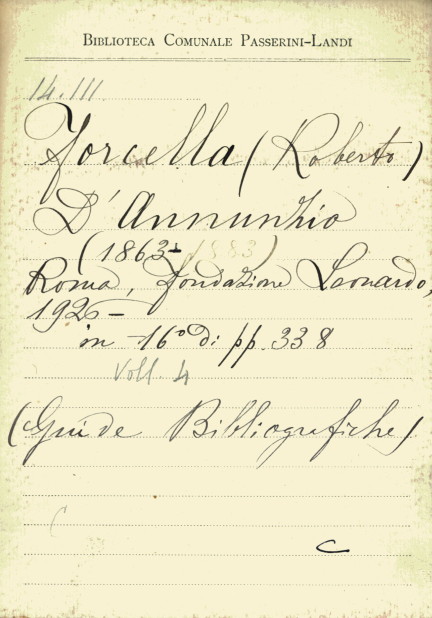 BIBLIOTECA COMUNALE PASSERINI-LANDI
14.III
Forcella (Roberto)
D'Annunzio
(1863-1883)
Roma, Fondazione Leonardo,
1926-
in -16° di pp. 338
Voll. 4
(Guide Bibliografiche)
C